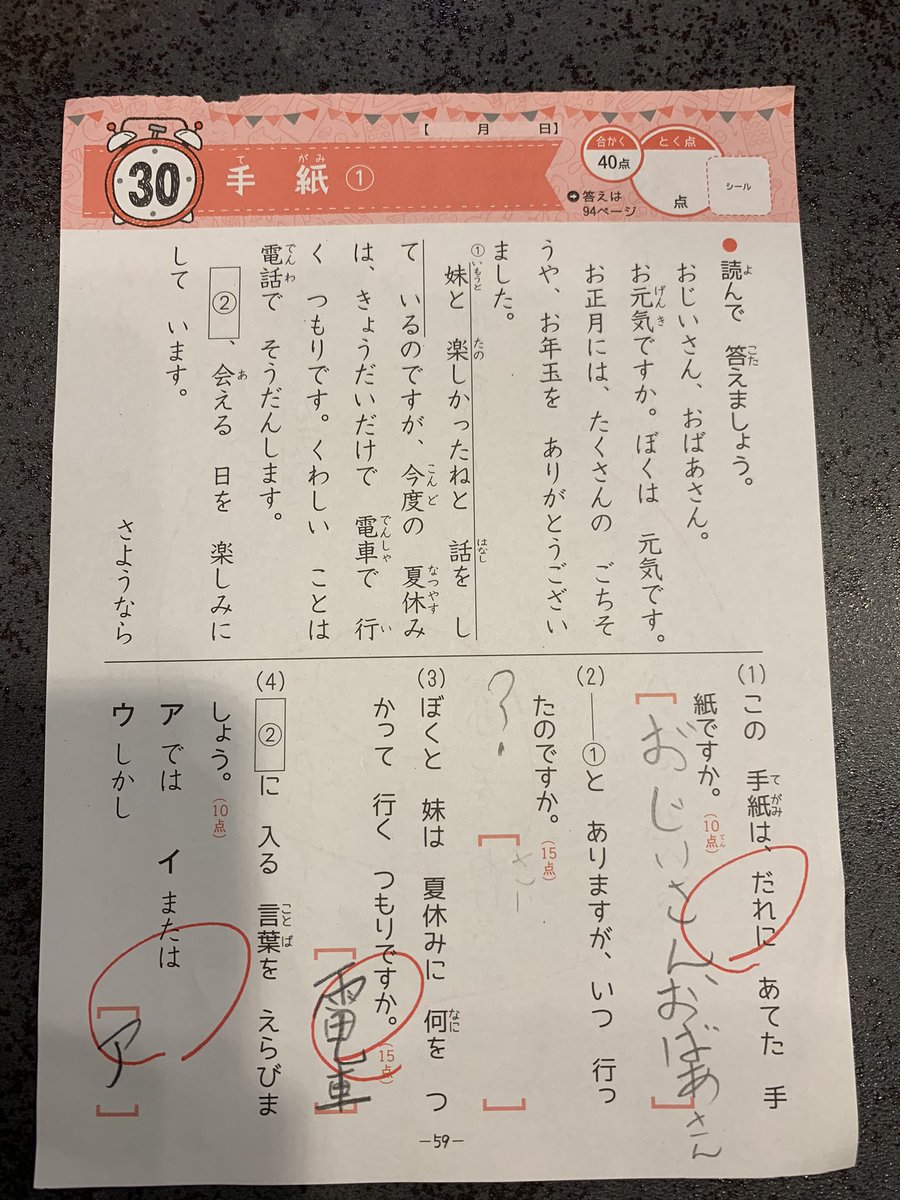 【　月　日】
30
手紙①
合かく
40点
とく点
点
シール
答えは
94ページ
● 読んで 答えましょう。
おじいさん、おばあさん。
お元気ですか。ぼくは 元気です。
お正月には、たくさんの ごちそ
うや、お年玉を ありがとうござい
ました。
①妹と 楽しかったねと 話を し
て いるのですが、今度の 夏休み
は、きょうだいだけで 電車で 行
く つもりです。くわしい ことは
電話で そうだんします。
②、会える 日を 楽しみに
して います。
さようなら
(1) この 手紙は、だれに あてた 手
紙ですか。(10点)
[おじいさん、おばあさん]
(2) ――①と ありますが、いつ 行っ
たのですか。(15点)
?
[　]
(3) ぼくと 妹は 夏休みに 何を つ
かって 行く つもりですか。(15点)
[電車]
(4) ②に 入る 言葉を えらびま
しょう。(10点)
ア では　イ または
ウ しかし
[ア]
―59―